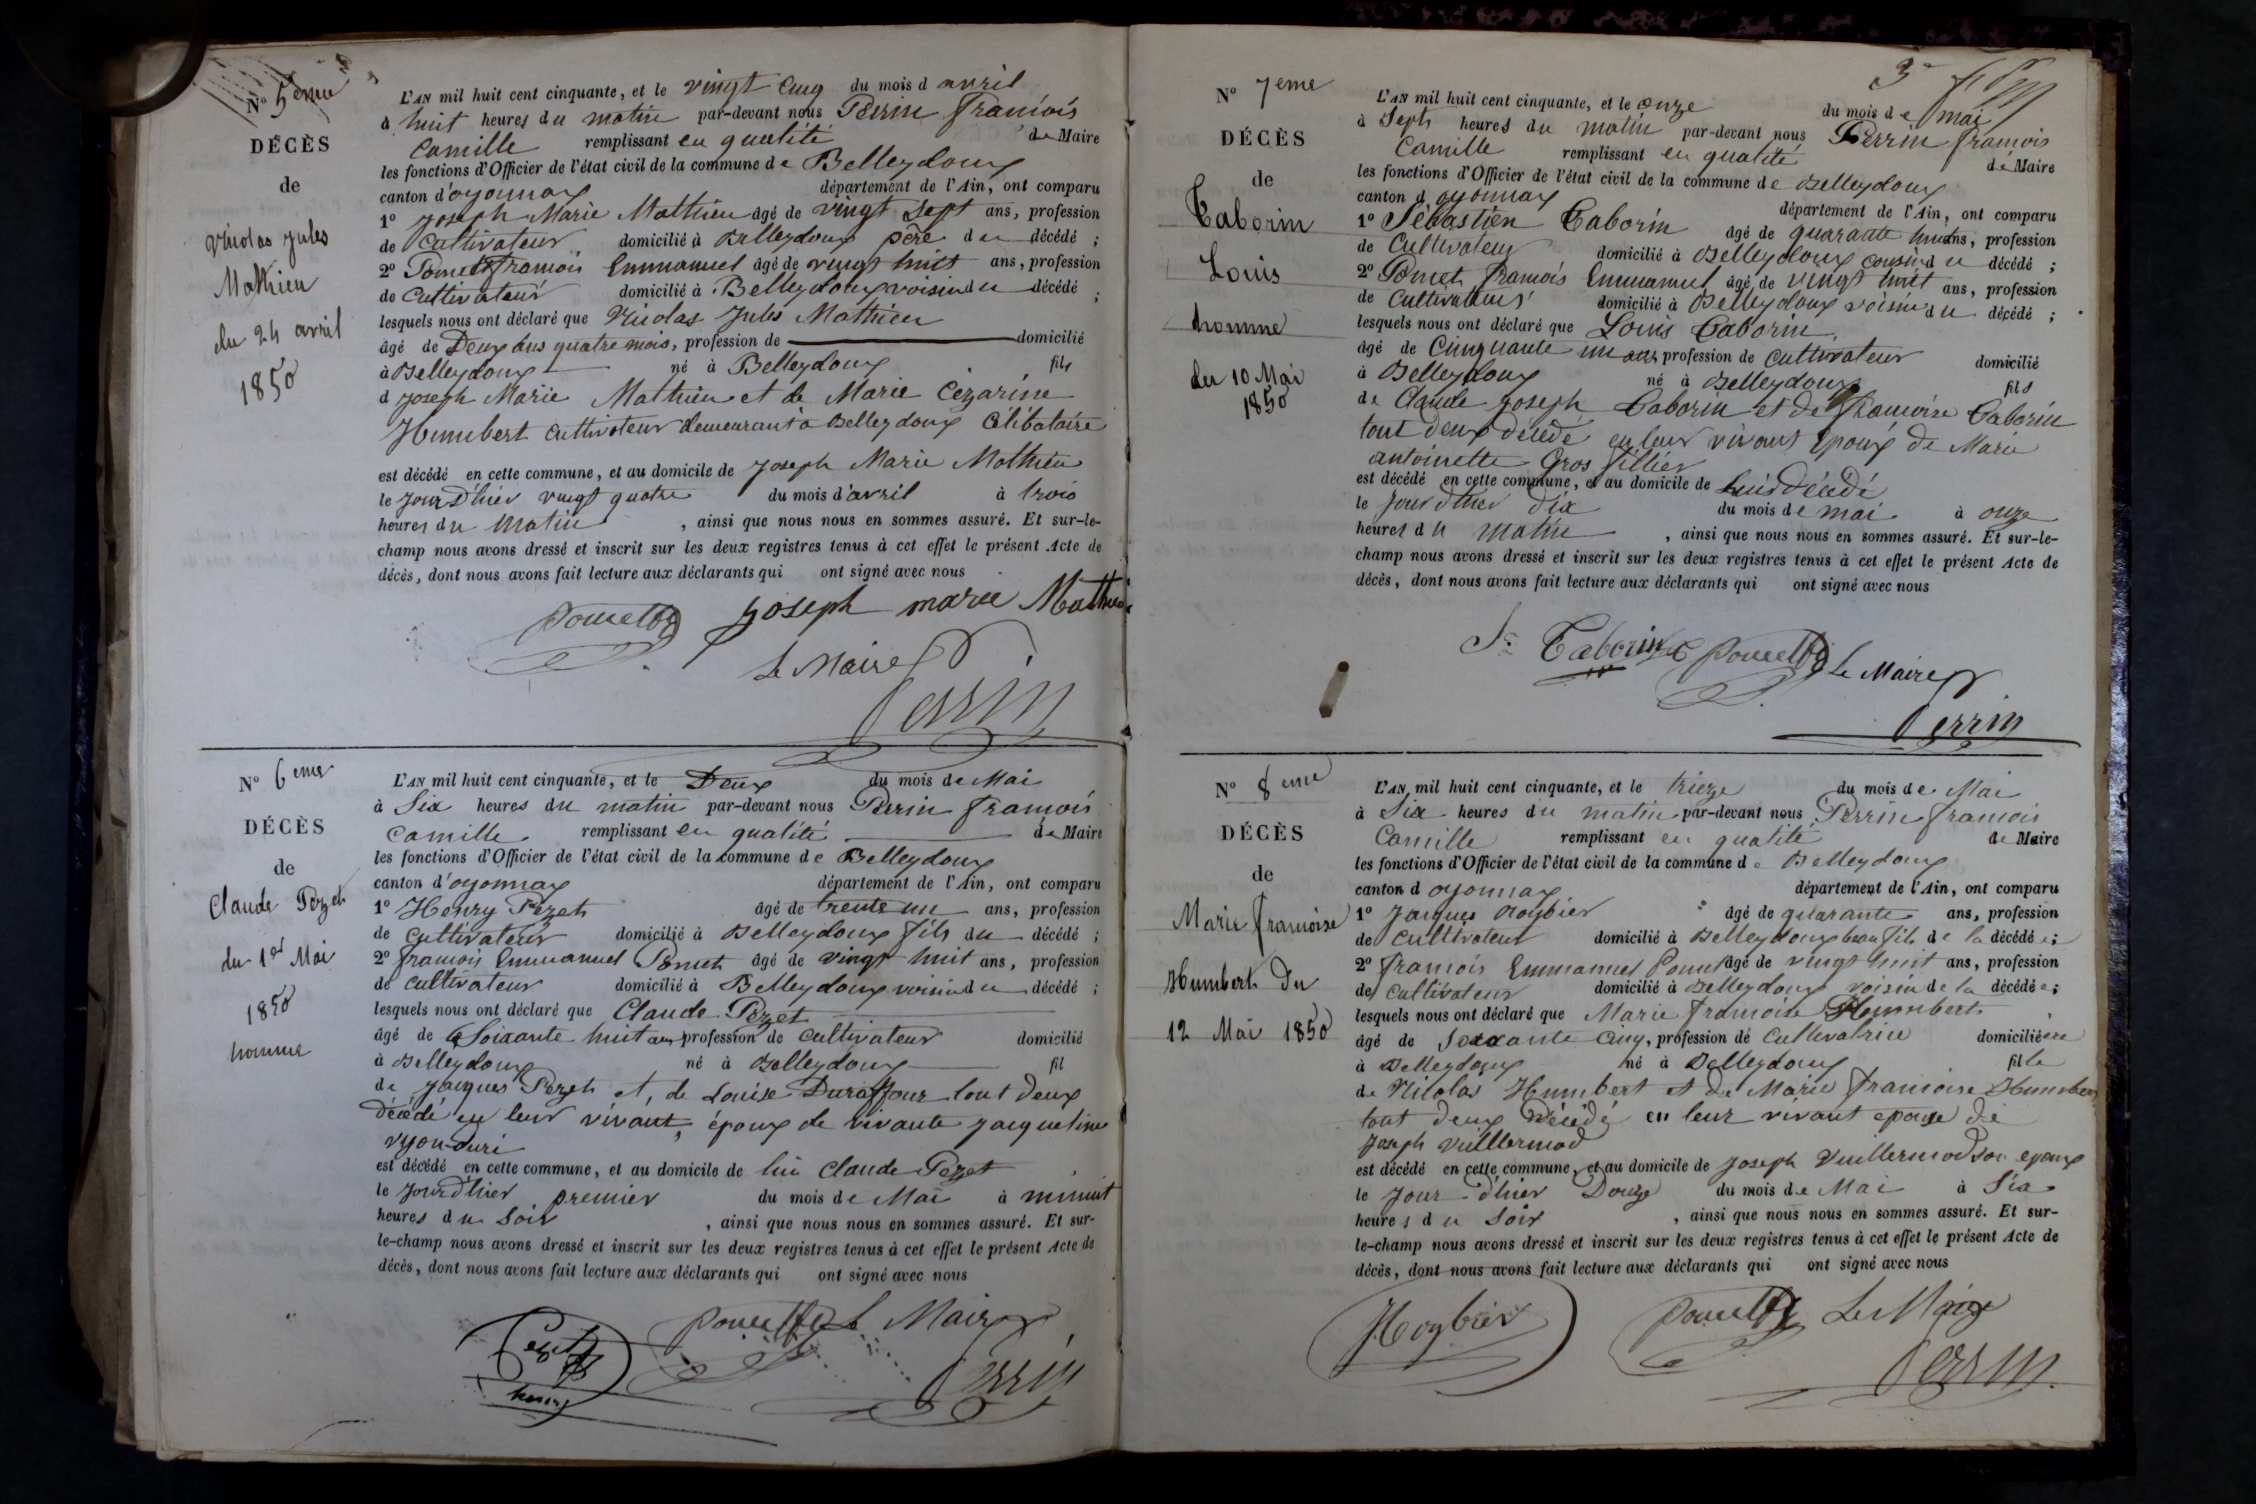 N° 5eme
DÉCÈS
de
Nicolas Jules
Mathieu
du 24 avril
1850
L'AN mil huit cent cinquante, et le vingt cinq du mois d avril
à huit heures du matin par-devant nous Perrin françois
Camille remplissant en qualité de Maire
les fonctions d'Officier de l'état civil de la commune de Belleydoux
canton d'oyonnax département de l'Ain, ont comparu
1° Joseph Marie Mathieu âgé de vingt sept ans, profession
de Cultivateur domicilié à Belleydoux père du décédé ;
2° Pomet françois Emmanuel âgé de vingt huit ans, profession
de Cultivateur domicilié à Belleydoux voisin du décédé ;
lesquels nous ont déclaré que Nicolas Jules Mathieu
âgé de Deux ans quatre mois, profession de domicilié
à Belleydoux né à Belleydoux fils
d Joseph Marie Mathieu et de Marie Cézarine
Humbert Cultivateur demeurant à Belleydoux Célibataire
est décédé en cette commune, et au domicile de Joseph Marie Mathieu
le jour d'hier vingt quatre du mois d'avril à trois
heures du matin , ainsi que nous nous en sommes assuré. Et sur-le-
champ nous avons dressé et inscrit sur les deux registres tenus à cet effet le présent Acte de
décès, dont nous avons fait lecture aux déclarants qui ont signé avec nous
joseph marie Mathieu
Le Maire
Perrin
N° 6eme
DÉCÈS
de
Claude Pezet
du 1er Mai
1850
homme
L'AN mil huit cent cinquante, et le Deux du mois de Mai
à Six heures du matin par-devant nous Perrin françois
Camille remplissant en qualité de Maire
les fonctions d'Officier de l'état civil de la commune de Belleydoux
canton d'oyonnax département de l'Ain, ont comparu
1° Henry Pezet âgé de trente un ans, profession
de Cultivateur domicilié à Belleydoux fils du décédé ;
2° françois Emmanuel Pomet âgé de vingt huit ans, profession
de Cultivateur domicilié à Belleydoux voisin du décédé ;
lesquels nous ont déclaré que Claude Pezet
âgé de Soixante huit ans profession de Cultivateur domicilié
à Belleydoux né à Belleydoux fil
de Jacques Pezet et, de Louise Duraffour tout deux
décédé en leur vivant, époux de vivante jacqueline
est décédé en cette commune, et au domicile de lui Claude Pezet
le jour d'hier premier du mois de Mai à minuit
heures du Soir , ainsi que nous nous en sommes assuré. Et sur-
le-champ nous avons dressé et inscrit sur les deux registres tenus à cet effet le présent Acte de
décès, dont nous avons fait lecture aux déclarants qui ont signé avec nous
Pezet
henry
Le Maire
Perrin
N° 7eme
DÉCÈS
de
Taborin
Louis
homme
du 10 Mai
1850
L'AN mil huit cent cinquante, et le onze du mois de mai
à Sept heures du matin par-devant nous Perrin françois
Camille remplissant en qualité de Maire
les fonctions d'Officier de l'état civil de la commune de Belleydoux
canton d oyonnax département de l'Ain, ont comparu
1° Sébastien Taborin âgé de quarante huit ans, profession
de Cultivateur domicilié à Belleydoux cousin du décédé ;
2° Pomet françois Emmanuel âgé de vingt huit ans, profession
de Cultivateur domicilié à Belleydoux voisin du décédé ;
lesquels nous ont déclaré que Louis Taborin
âgé de Cinquante un ans profession de Cultivateur domicilié
à Belleydoux né à Belleydoux fils
de Claude Joseph Taborin et de françoise Taborin
tout deux décédé en leur vivant Epoux de Marie
antoinette Gros fillier
est décédé en cette commune, et au domicile de Luis décédé
le Jour d'hier dix du mois de mai à onze
heures du matin , ainsi que nous nous en sommes assuré. Et sur-le-
champ nous avons dressé et inscrit sur les deux registres tenus à cet effet le présent Acte de
décès, dont nous avons fait lecture aux déclarants qui ont signé avec nous
Taborin Le Maire
Perrin
N° 8eme
DÉCÈS
de
Marie françoise
Humbert du
12 Mai 1850
L'AN mil huit cent cinquante, et le trieze du mois de Mai
à Six heures du matin par-devant nous Perrin françois
Camille remplissant en qualité de Maire
les fonctions d'Officier de l'état civil de la commune de Belleydoux
canton d oyonnax département de l'Ain, ont comparu
1° Jacques âgé de quarante ans, profession
de Cultivateur domicilié à Belleydoux beau fils de la décédée ;
2° françois Emmanuel Pomet âgé de vingt huit ans, profession
de Cultivateur domicilié à Belleydoux voisin de la décédée ;
lesquels nous ont déclaré que Marie françoise Humbert
âgé de Soixante Cinq, profession de Cultivatrice domiciliée
à Belleydoux né à Belleydoux fille
de Nicolas Humbert et de Marie françoise Humbert
tout deux décédé en leur vivant epouse de
Joseph Vuillermod
est décédé en cette commune, et au domicile de Joseph Vuillermod son epoux
le jour d'hier Douze du mois de Mai à Six
heures du Soir , ainsi que nous nous en sommes assuré. Et sur-
le-champ nous avons dressé et inscrit sur les deux registres tenus à cet effet le présent Acte de
décès, dont nous avons fait lecture aux déclarants qui ont signé avec nous
Le Maire
Perrin